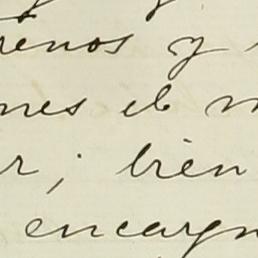 renos y
nes el m
r; bien
encargn